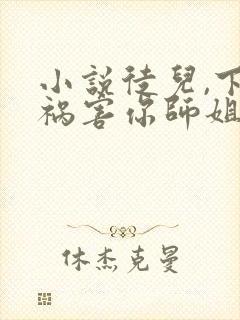 小説徒兒,下
禍害你師姐
休杰克曼